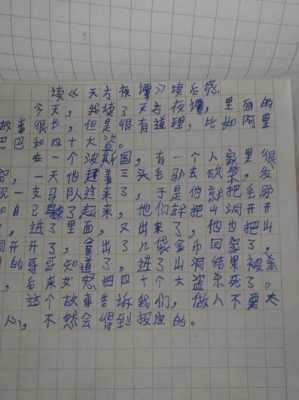 读《天方夜谭》读后感
今天，我读了天方夜谭，里面的
故事很长，但是很有道理，比如阿里
巴巴和四十大盗。
在一个波斯国，有一个人家里很
，一天他赶着三头毛驴去砍柴，发
现一支马队过来了，于是他就把毛驴
和自己了起来，他们就把山洞开开
，进了里面，又出来了，他也把山
洞开开了，拿出了几袋金币回家了，
的哥哥知道了，进了山洞结果被杀
，后来女把四十个大盗杀死了。
这个故事告诉我们，做人不要太
心，不然会得到报应的。